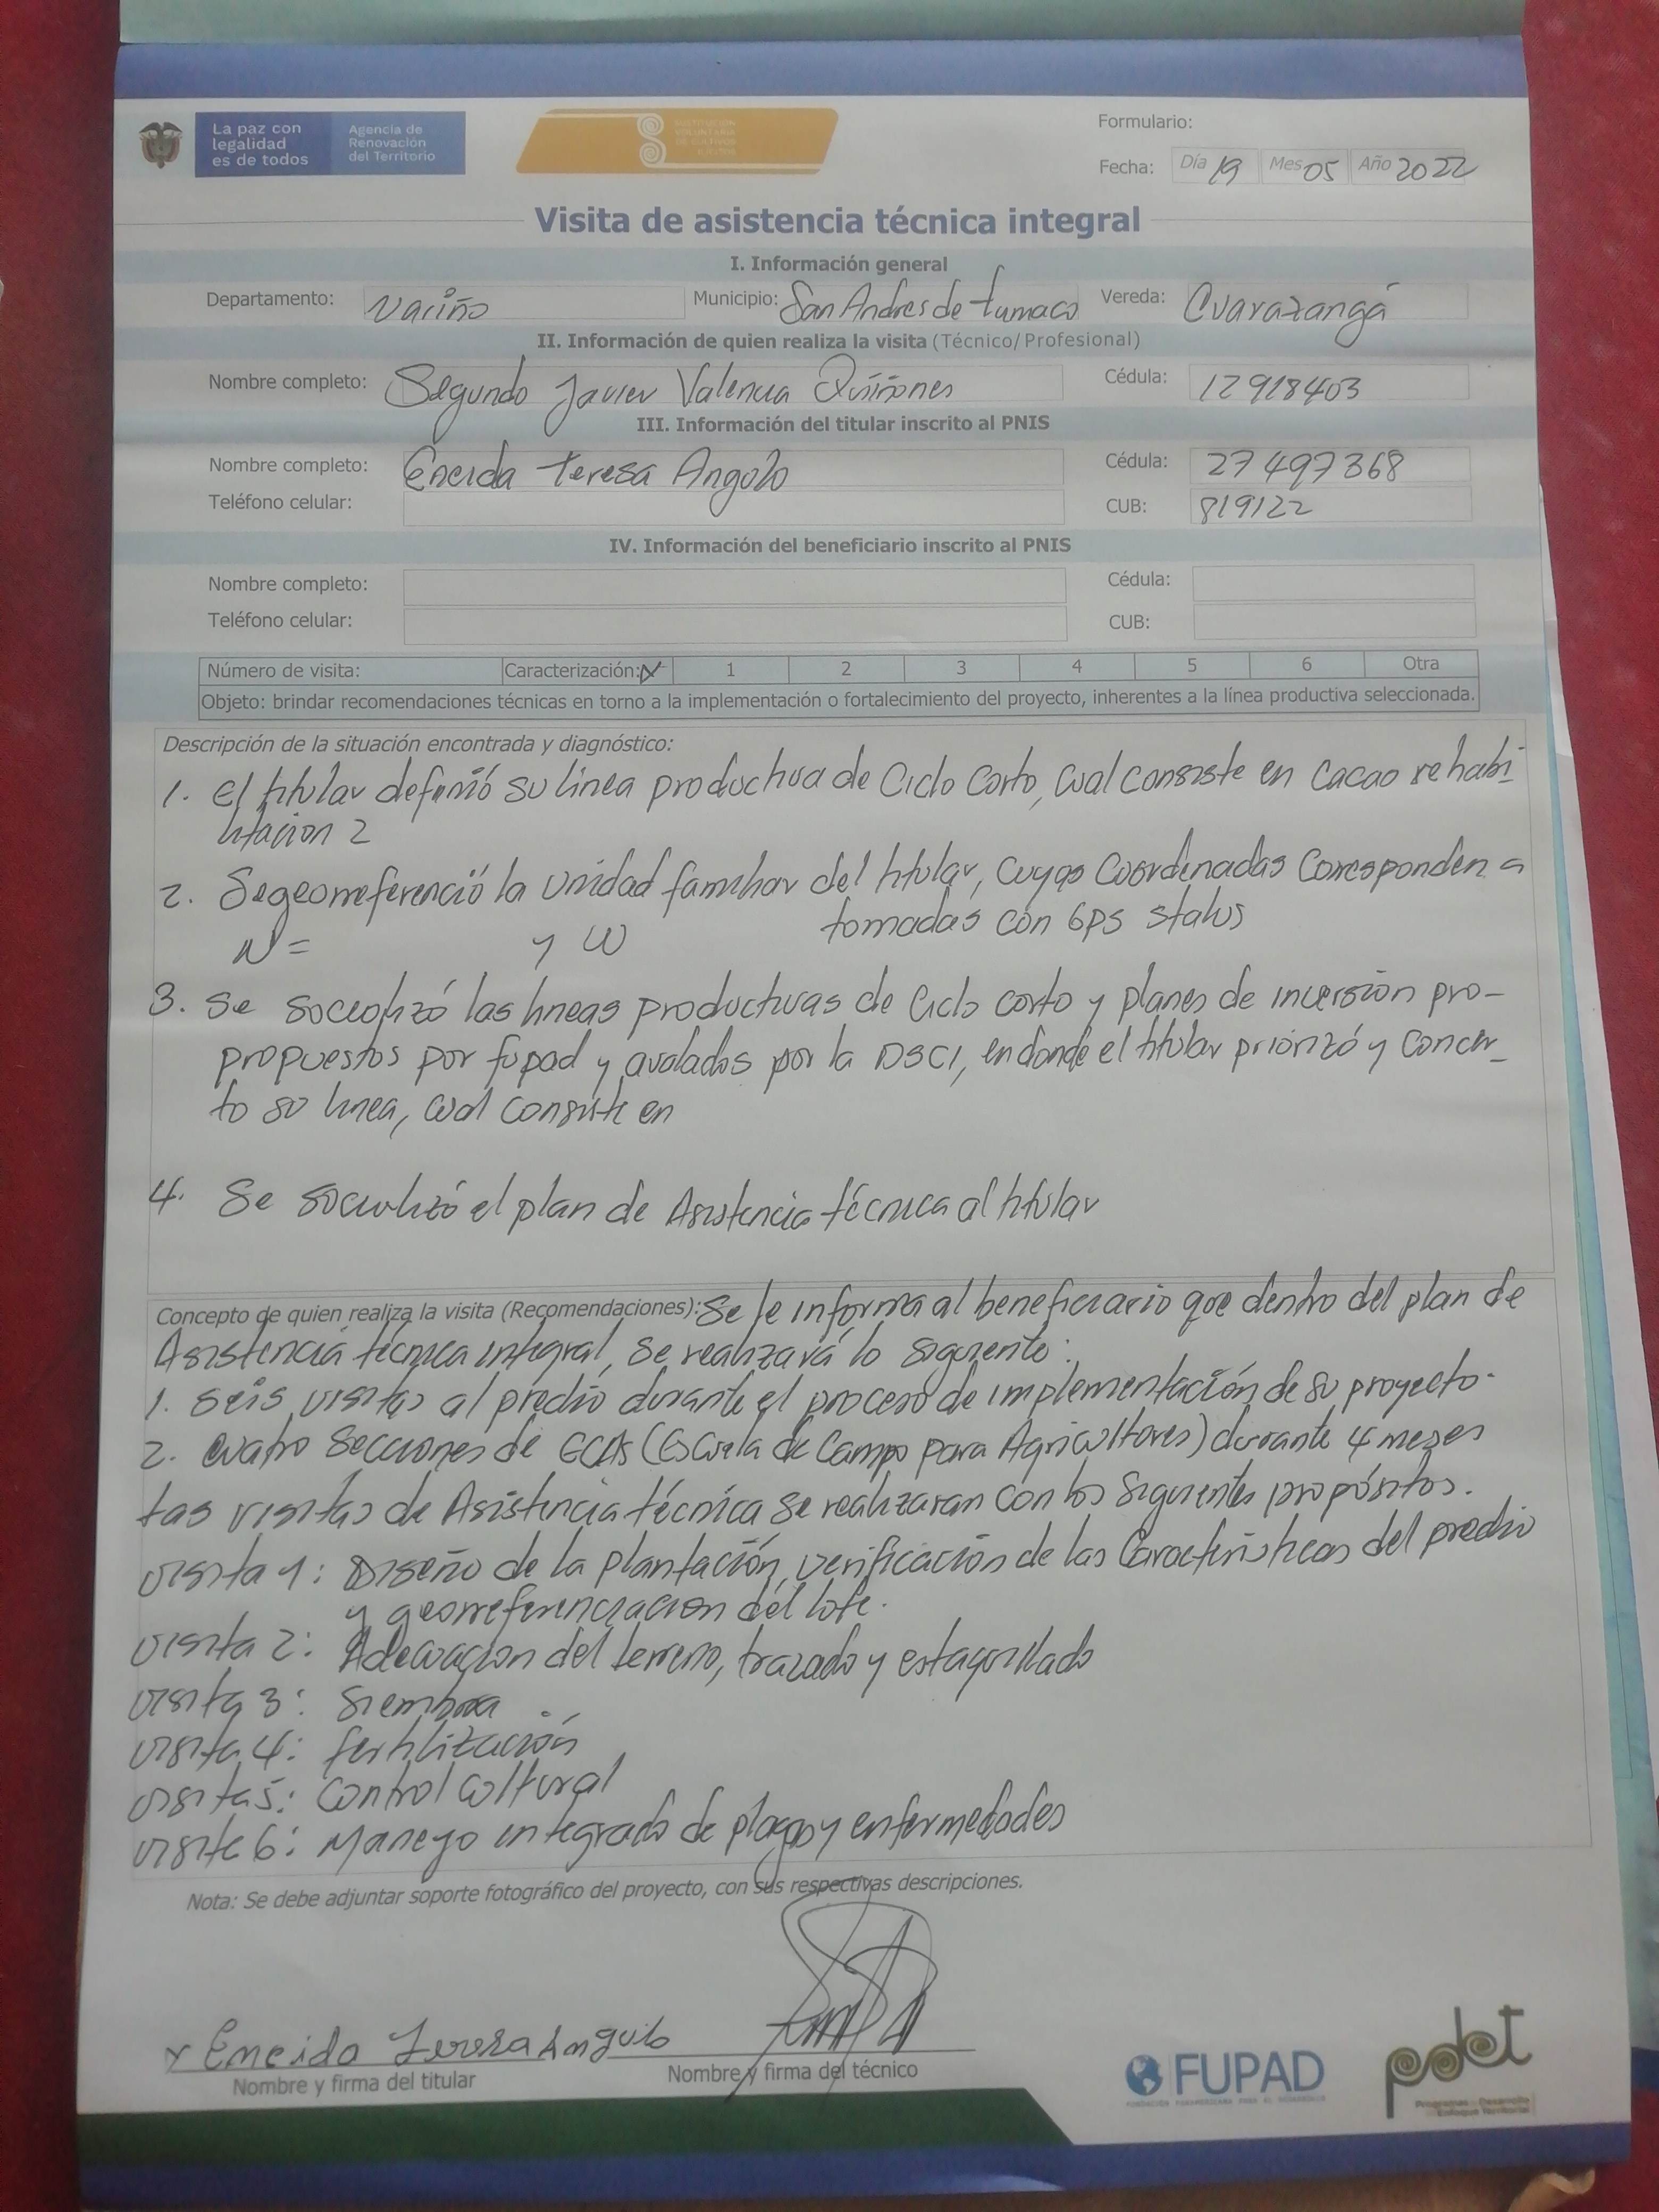 La paz con
legalidad
es de todos
Agencia de
Renovación
del Territorio
SUSTITUCIÓN
VOLUNTARIA
DE CULTIVOS
ILÍCITOS
Formulario:
Fecha: Día 19 Mes 05 Año 2022
Visita de asistencia técnica integral
I. Información general
Departamento: Nariño Municipio: San Andres de tumaco Vereda: Cuarazangá
II. Información de quien realiza la visita (Técnico/Profesional)
Nombre completo: Segundo Javier Valencia Quiñones Cédula: 12918403
III. Información del titular inscrito al PNIS
Nombre completo: Eneida teresa Angulo Cédula: 27497368
Teléfono celular: CUB: 819122
IV. Información del beneficiario inscrito al PNIS
Nombre completo: Cédula:
Teléfono celular: CUB:
Número de visita: Caracterización: X 1 2 3 4 5 6 Otra
Objeto: brindar recomendaciones técnicas en torno a la implementación o fortalecimiento del proyecto, inherentes a la línea productiva seleccionada.
Descripción de la situación encontrada y diagnóstico:
1. el titular definió su línea productiva de Ciclo Corto, cual consiste en Cacao rehabi-
litacion 2
2. Se georreferenció la unidad familiar del titular, cuyas Coordenadas Corresponden a
N = y W tomadas con GPS status
3. Se socializó las lineas productivas de Ciclo corto y planes de inversión pro-
propuestos por fupad y avalados por la DSCI, en donde el titular priorizó y concer-
to su linea, cual consiste en
4. Se socializó el plan de Asistencia técnica al titular
Concepto de quien realiza la visita (Recomendaciones): Se le informa al beneficiario que dentro del plan de
Asistencia técnica integral, se realizará lo siguiente:
1. Seis visitas al predio durante el proceso de implementación de su proyecto.
2. Cuatro Secciones de ECAs (Escuela de Campo para Agricultores) durante 4 meses
Las visitas de Asistencia técnica se realizaran con los siguientes propósitos.
visita 1: Diseño de la plantación, verificación de las Características del predio
y georreferenciacion del lote.
visita 2: Adecuacion del terreno, trazado y estaquillado
visita 3: Siembra
visita 4: fertilización
visita 5: Control Cultural
visita 6: Manejo integrado de plagas y enfermedades
Nota: Se debe adjuntar soporte fotográfico del proyecto, con sus respectivas descripciones.
x Eneida Teresa Angulo
Nombre y firma del titular
Nombre y firma del técnico
FUPAD
FUNDACIÓN PANAMERICANA PARA EL DESARROLLO
pdet
Programas de Desarrollo
con Enfoque Territorial